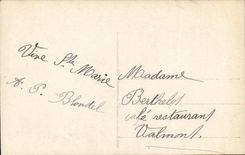 Vive Ste Marie
A. P. Blondel
Madame
Berthelot
café restaurant
Valmont.